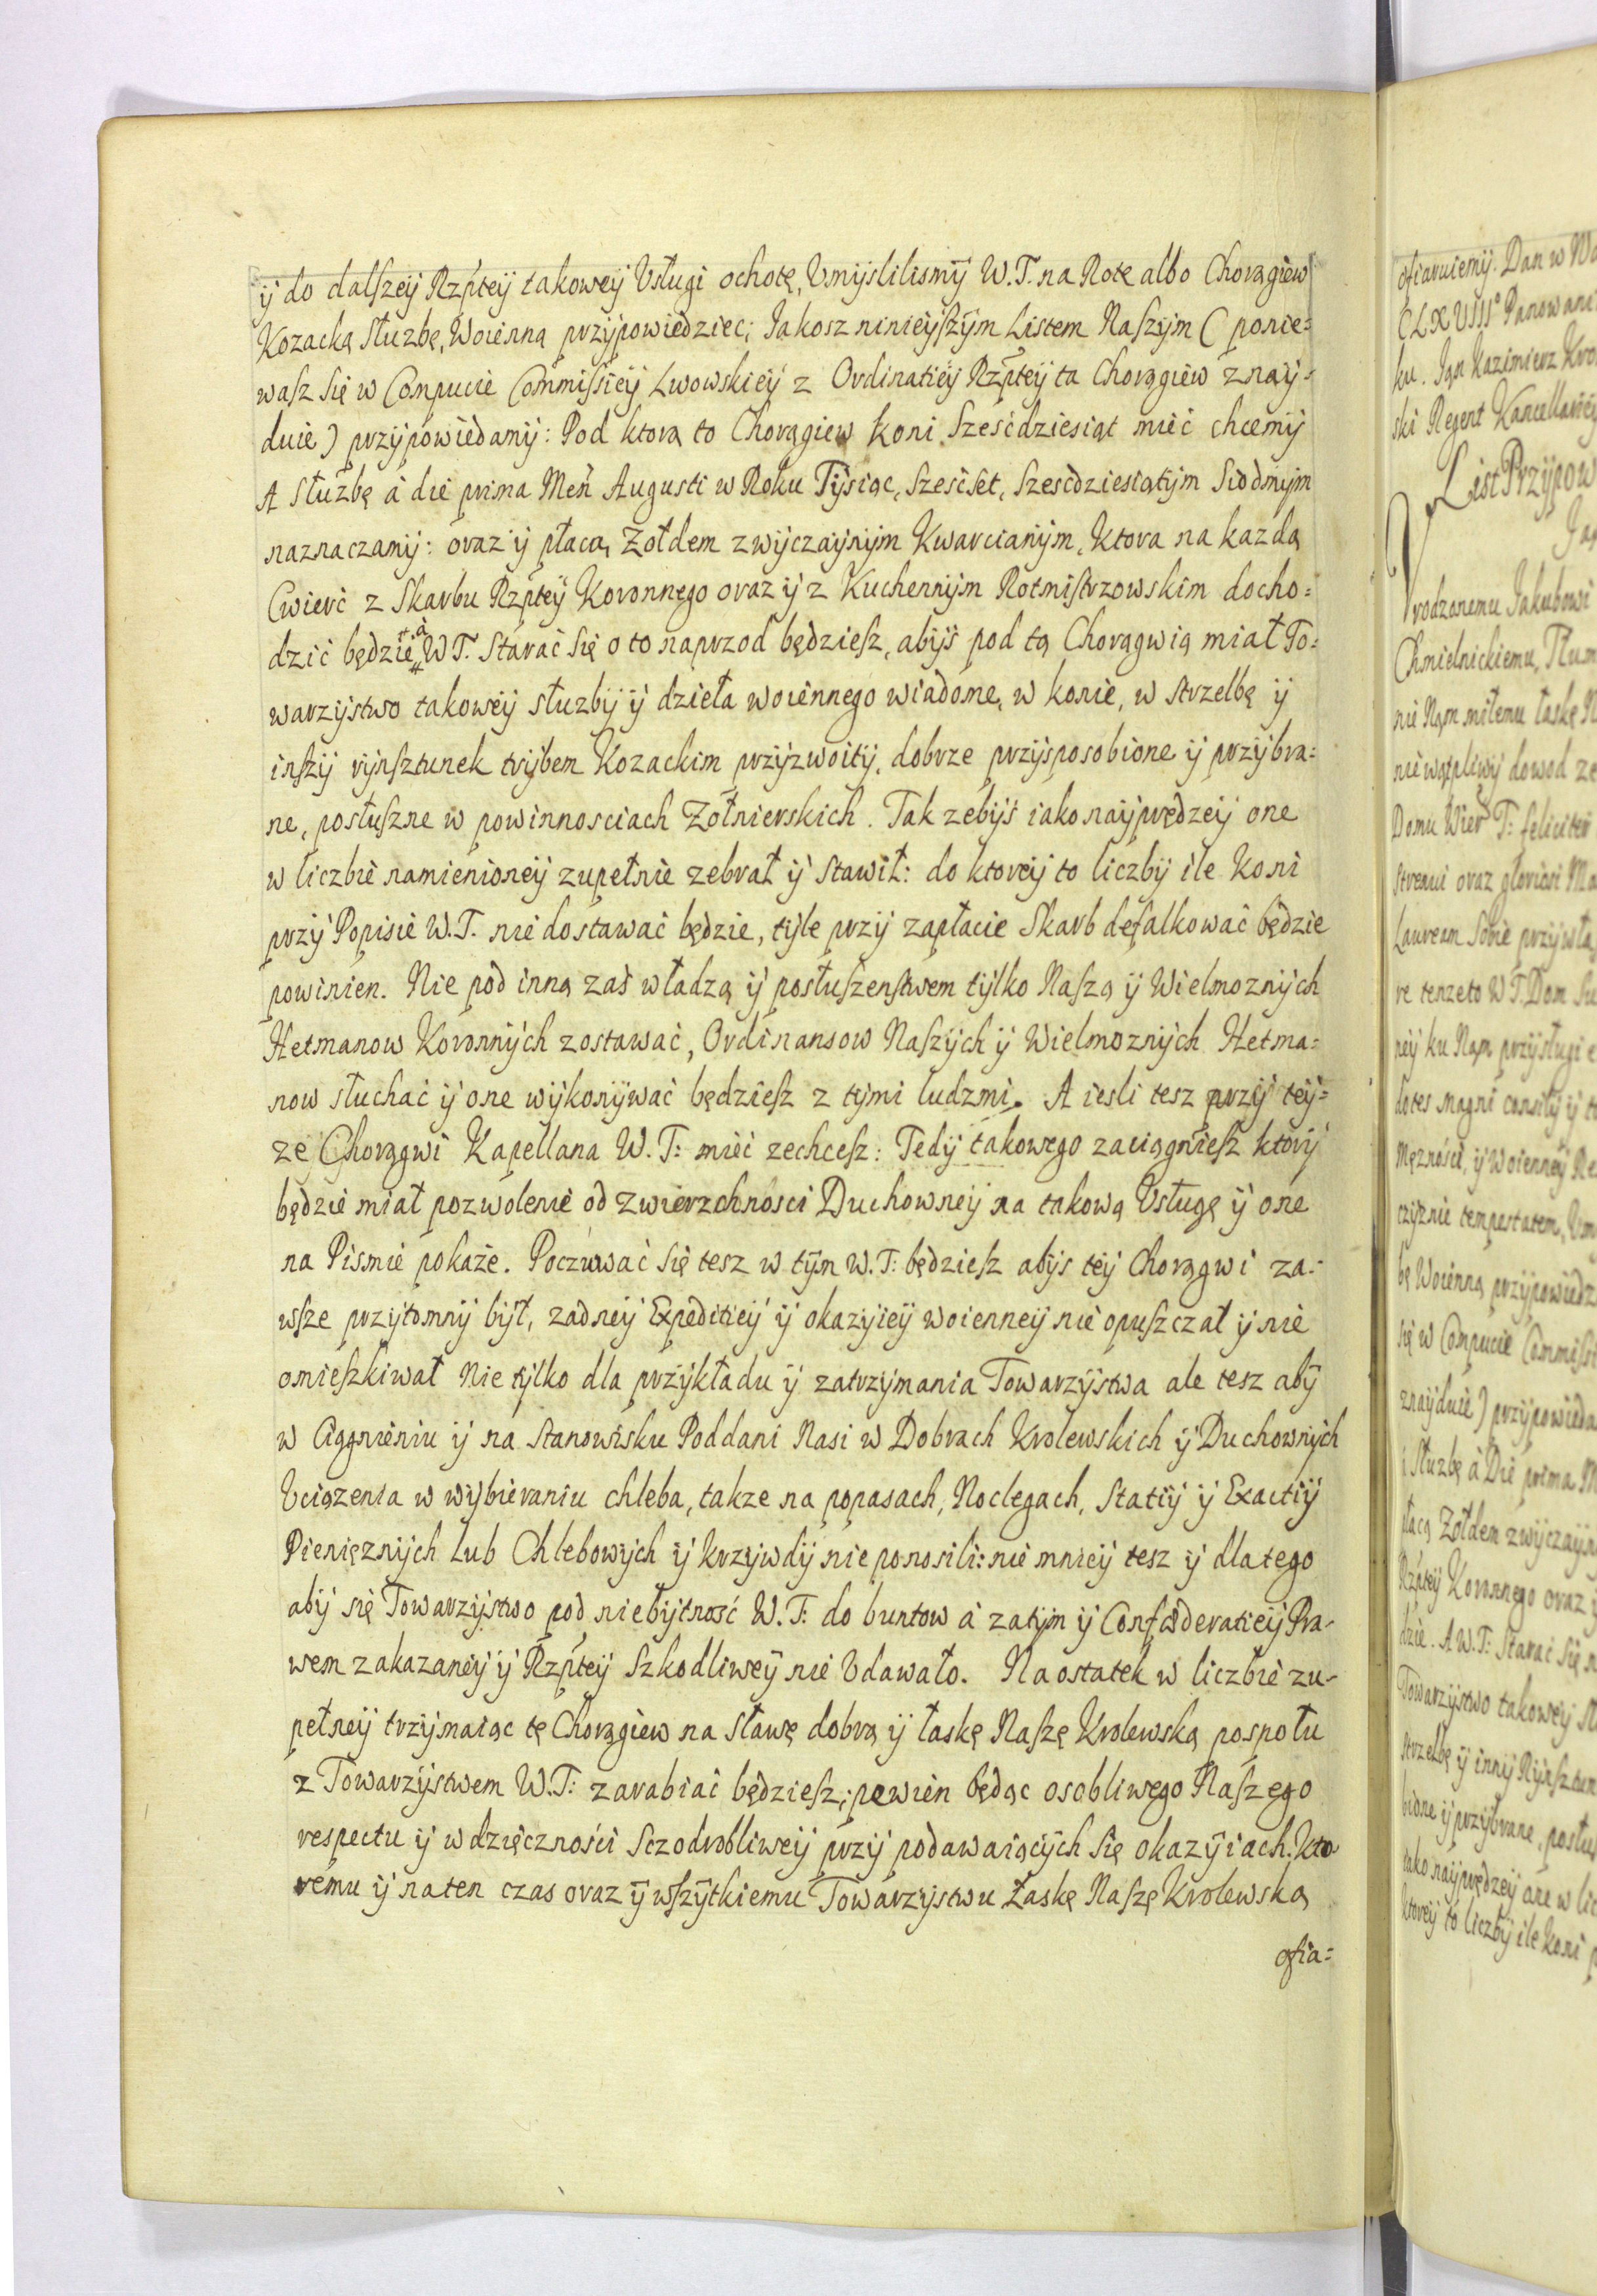 ÿ do dalſzeÿ Rzṕteÿ takoweÿ Vsługi ochotę, Vmÿslilismÿ W.T. na Rotę albo Chorągiew
Kozacką Służbę, Woienną przÿpowiedziec; Iakosz ninieÿſzÿm Listem Naſzÿm ( ponie=
waſz się w Compucie Commiſsieÿ Lwowskieÿ z Ordinatieÿ Rzṕteÿ ta Chorągiew znaÿ=
duie ) przÿpowiedamÿ: Pod ktorą to Chorągiew koni Sześćdziesiąt mieć chcemÿ
A Służbę à die prima Meń Augusti w Roku Tÿsiąc, Sześćset, Sześćdziesiątÿm Siodmÿm
naznaczamÿ: oraz ÿ płacą Żołdem zwÿczaÿnÿm Kwarcianÿm, Ktora na kazdą
Cwierć z Skarbu Rzṕteÿ Koronnego oraz ÿ z Kuchennÿm Rotmistrzowskim docho=
dzić będzie à W T. Starać się o to naprzod będzieſz, abÿś pod tą Chorągwią miał To=
warzÿstwo takoweÿ służbÿ ÿ dzieła woiennego wiadome, w konie, w strzelbę ÿ
inſzÿ rÿnſztunek trÿbem Kozackim przÿzwoitÿ, dobrze przÿsposobione ÿ przÿbra=
ne, posłuszne w powinnosciach Żołnierskich. Tak zebÿś iako naÿprędzeÿ one
w liczbie namienioneÿ zupełnie zebrał ÿ Stawił: do ktoreÿ to liczbÿ ile koni
przÿ Popisie W.T. nie dostawać będzie, tÿle przÿ zapłacie Skarb defalkować będzie
powinien. Nie pod inną zaś władzą ÿ posłuſzenſtwem tÿlko Naſzą ÿ Wielmoznÿch
Hetmanow Koronnÿch zostawać, Ordinansow Naſzÿch ÿ Wielmoznÿch Hetma=
now słuchać ÿ one wÿkonÿwać będzieſz z tÿmi ludzmi. A iesli tesz przÿ teÿ=
ze Chorągwi Kapellana W.T: mieć zechceſz: Tedÿ takowego zaciągnieſz ktorÿ
będzie miał pozwolenie od zwierzchności Duchowneÿ na takową Vsługę ÿ one
na Pismie pokaże. Poczuwać się tesz w tÿm W.T: będzieſz abÿs teÿ Chorągwi za=
wſze przÿtomnÿ bÿł, zadneÿ Expeditieÿ ÿ okazÿieÿ woienneÿ nie opuſzczał ÿ nie
omieſzkiwał Nie tÿlko dla przÿkładu ÿ zatrzÿmania Towarzÿstwa ale tesz abÿ
w Ciągnieniu ÿ na Stanowisku Poddani Nasi w Dobrach Krolewskich ÿ Duchownÿch
Vciązenia w wÿbieraniu chleba, takze na popasach, Noclegach, Statiÿ ÿ Exactiÿ
Pienięznÿch lub Chlebowÿch ÿ krzÿwdÿ nie ponosili: nie mnieÿ tesz ÿ dlatego
abÿ się Towarzÿstwo pod niebÿtność W.T: do buntow à zatÿm ÿ Confœderatieÿ Pra=
wem zakazaneÿ ÿ Rzṕteÿ Szkodliweÿ nie Vdawało. Na ostatek w liczbie zu=
pełneÿ trzÿmaiąc tę Chorągiew na Sławę dobrą ÿ łaskę Naſzę Krolewską pospołu
z Towarzÿstwem W.T: zarabiać będzieſz, pewien będąc osobliwego Naſzego
respectu ÿ wdzięcznośći Sczodrobliweÿ przÿ podawaiącÿch się okazÿiach. Kto
remu ÿ na ten czas oraz ÿ wſzÿtkiemu Towarzÿstwu Łaskę Naſzę Krolewską
ofia=
ofiaruiemÿ. Dan w
ku. Jan Kazimierz
ski Regent Kancellarieÿ
List Przÿpow
Vrodzonemu Jakubowi
Chmielnickiemu,
nie Nam miłemu łaskę
niewątpliwÿ dowod ze
Domu Wier T: feliciter
strenui oraz gloriosi
Lauream Sobie przÿwła
re tenze to W T. Dom
neÿ ku Nam przÿsługi
dotes magni consilÿ ÿ
Męzności, ÿ Woienneÿ
czÿznie tempestatem,
bę Woienną przÿpowiedz
się w Compucie Commiſsi
znaÿduie ) przÿpowieda
i Służbę à Die prima
łacą Żołdem zwÿczaÿn
Rzṕteÿ Koronnego oraz ÿ
dzie. A W.T: Starać się
Towarzÿstwo takoweÿ
strzelbę ÿ innÿ Rÿnſztun
bione ÿ przÿbrane, posłu
iako naÿprędzeÿ one w lic
ktoreÿ to liczbÿ ile koni